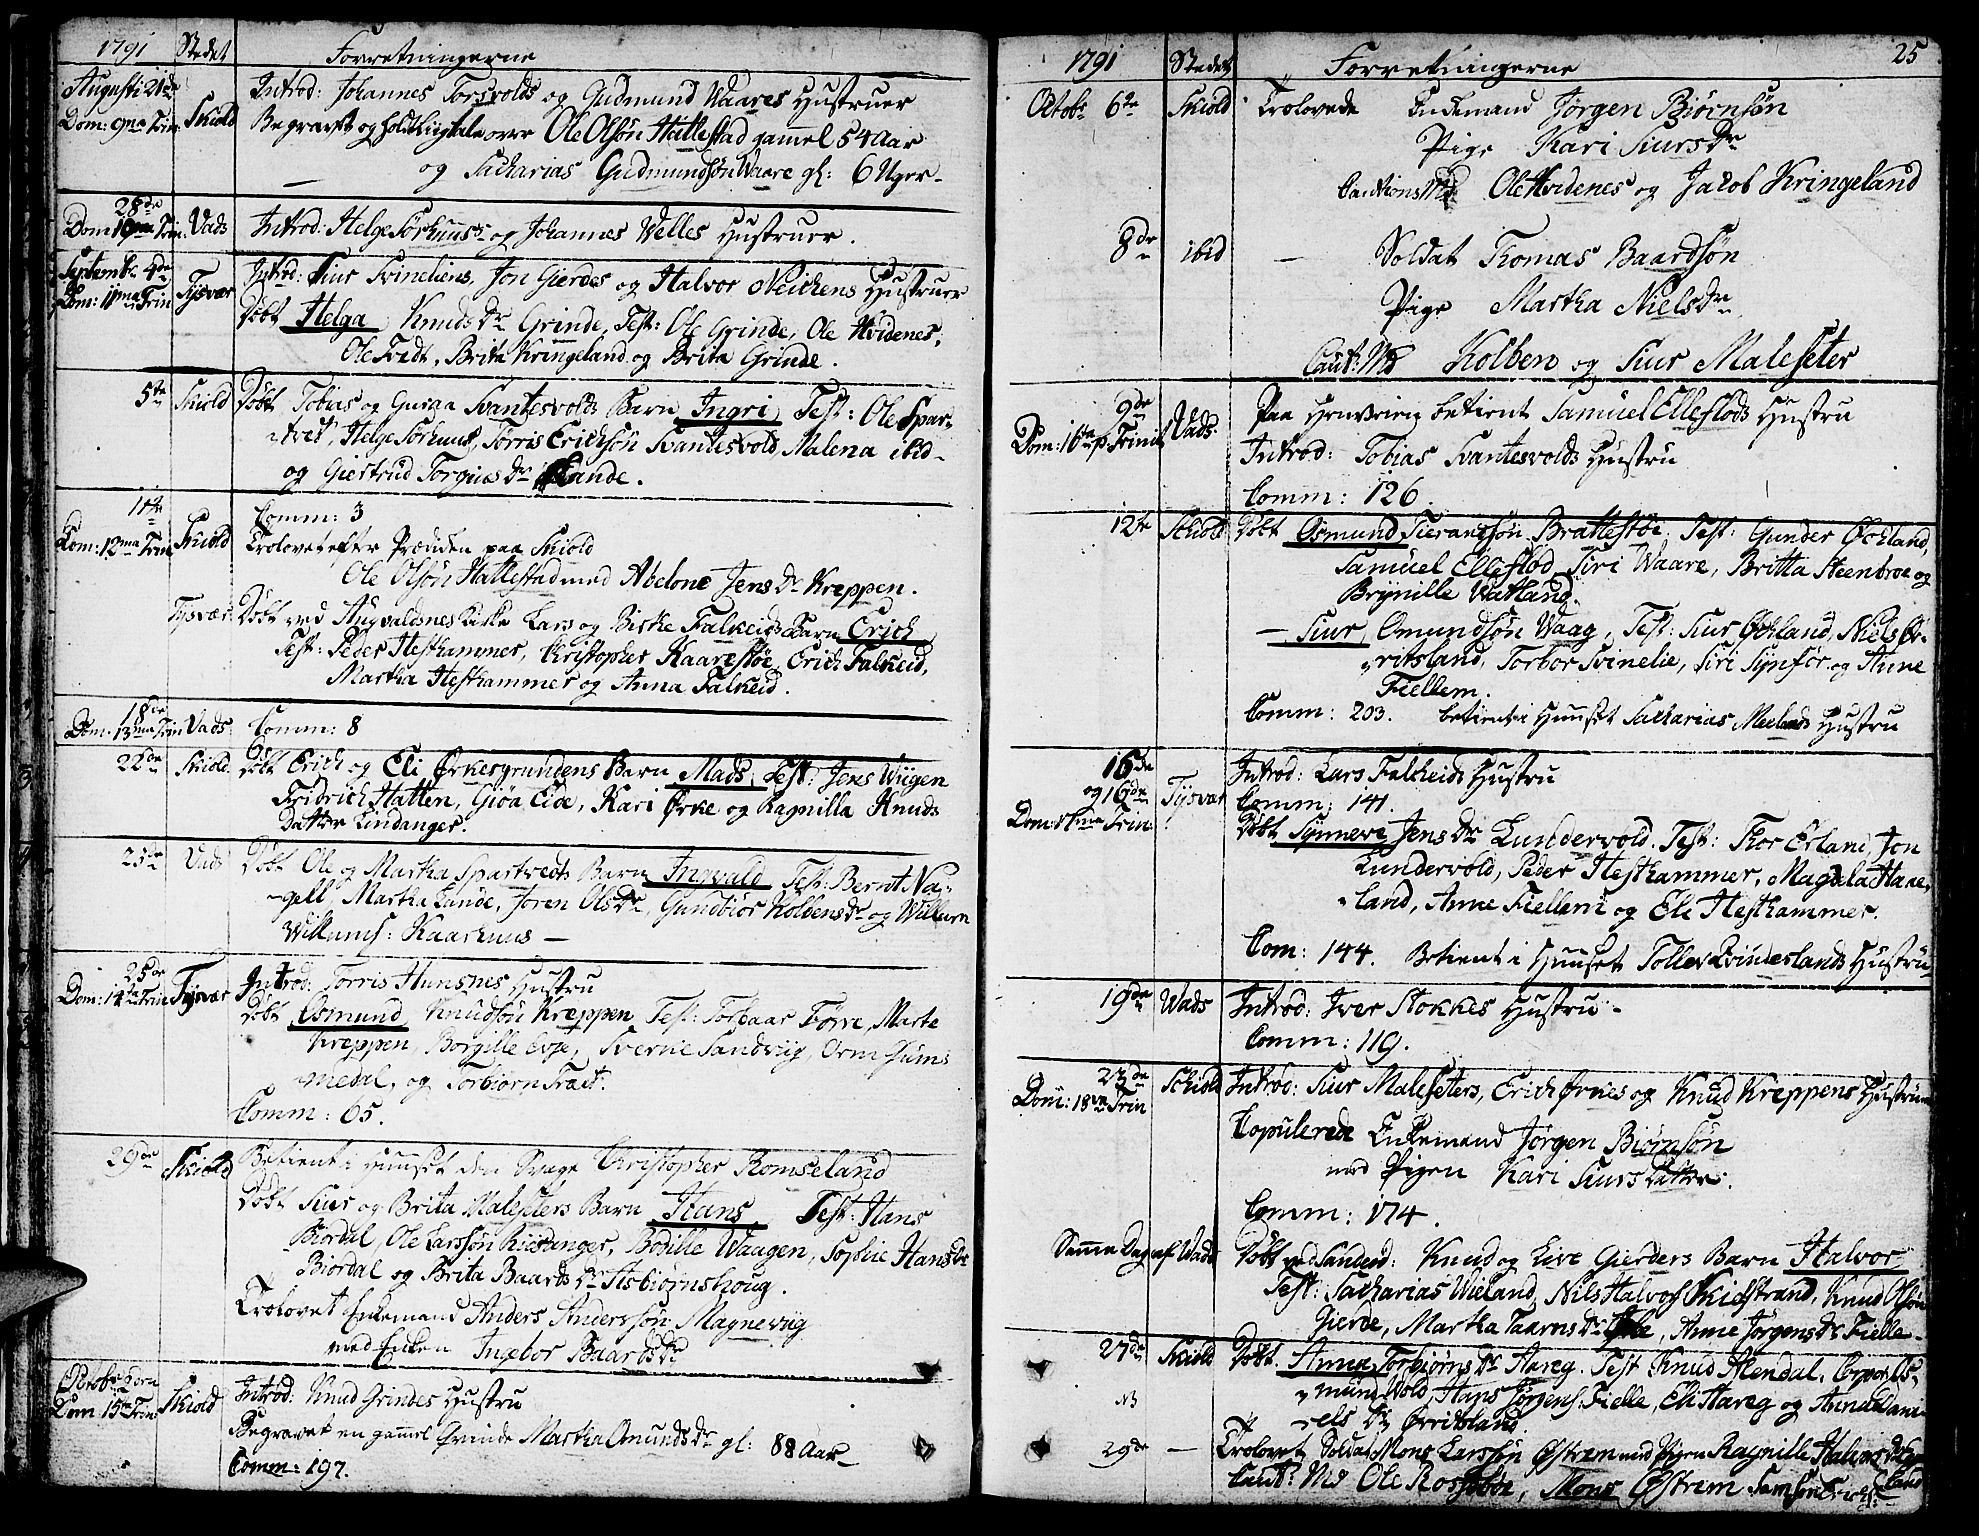 1791 Stedet Forretningerne
Augusti 21de Introd: Johannes Torsvolds og Gudmund Waares Hustruer
Dom: 9na Trin: Skiold Begravet og holdt Liigtale over Ole Olsøn Hallestad gammel 54 Aar
og Sacharias Gudmundsøn Waare gl: 6 Uger
28de
Dom: 10ma Trin: Vads Introd: Helge Sørhuus og Johannes Welles Hustruer.
Septembr. 4de Introd: Siur Svineliens, Jon Gierdes og Halvor Neichens Hustruer
Dom: 11ma Trin Tysvær Døbt Helga Knuds Dr Grinde, Test: Ole Grinde, Ole Hvidenes,
Ole Tvedt, Brita Kringeland og Brita Grinde.
5te Skiold Døbt Tobias og Guroa Svantesvolds Barn Ingri Test: Ole Spar-
tvet, Helge Sørhuus, Torris Erichsøn Svantesvold, Malena ibid
og Giertrud Torgius Dr Lande.
11te Comm: 3
Dom: 12ma Trin Skiold Trolovet efter Prædiken paa Skiold
Ole Olsøn Hallestad med Abelone Jens Dr Kreppen.
Tysvær Døbt ved Augvaldsnes Kirke Lars og Birthe Falkeids Barn Erich
Test: Peder Hesthammer, Christopher Kaarestøe, Erich Falkeid,
Martha Hesthammer og Anna Falkeid.
18de
Dom: 13ma Trin Vads Comm: 8
22de Skiold Døbt Erich og Eli Ørkesgrundens Barn Mads, Test: Jens Wiigen
Fridrich Hatten, Giøa Eide, Kari Ørke og Ragnilla Knuds
Datter Lindanger.
23de Vads Døbt Ole og Martha Spartvedts Barn Ingvald Test: Bernt Na-
gell, Martha Lande, Joren Ols Dr, Gundbiør Kolbens Dr og Willum
Willums: Kaarhuus
25de Introd: Torris Hunsnes Hustru
Dom: 14ta Trin Tysvær Døbt Osmund Knudsøn Kreppen Test: Torbaar Førre, Marte
Kreppen, Borgille Eoje, Sverrie Sandviig, Orm Hum-
medal, og Torbiørn Træet.
Comm: 65.
29de Skiold Betient i Huuset den Svage Christopher Romseland
Døbt Siur og Brita Malesetters Barn Hans Test: Hans
Biordal, Ole Larssøn Risanger, Bodille Waagen, Sophie Hans Dr
Biordal og Brita Baards Dr Aisbiørnshoug.
Trolovet Enkemand Anders Anderssøn Magneviig
med Enken Ingebor Baards Dr
Octobr 2den Introd: Knud Grindes Hustru
Dom 15te Trin Skiold Begravet en gammel Qvinde Martha Omunds Dr gl: 88 Aar
Comm: 197.
1791 Stedet Forretningerne 25
Octobr 6te Skiold Trolovede Enkemand Jørgen Biørnsøn
Pige Kari Siurs Dr
Cautions Md Ole Hvidenes og Jacob Kringeland
8de ibid — Soldat Thomas Baardsøn
Pige Martha Niels Dr
Caut: Md Kolben og Siur Maleseter
9de Vads Paa Henveien betient Samuel Ellefløds Hustru
Dom: 16ta p. Trinit Introd: Tobias Svantesvolds Hustru
Comm: 126.
12te Schiold Døbt Osmund Tierandsøn Brattestøe, Test: Gunder Øchland,
Samuel Ellefløds, Siri Waare, Britta Steenbroe og
Brynille Vatland.
— Siur Omundsøn Waag, Test: Siur Øchland, Niels Ør-
ritsland, Torbor Svinelie, Siri Synfør og Anne
Fiellem.
Comm: 203. betient i Huuset Sacharias Meelands Hustru
16de Introd: Lars Falkeids Hustru
og 16de Tysvær Comm: 141.
Dom: 17ma Trin: Døbt Synneve Jens Dr Lundervold. Test: Thor Erland, Jon
Lundervold, Peder Hesthammer, Magdela Haae-
land, Anne Fiellem og Eli Hesthammer.
Com: 144. Betient i Huuset Tollev Qvinderlands Hustru
19de Wads Introd: Iver Stokkes Hustru
Comm: 119.
23de Schiold Introd: Siur Malesetters, Erich Ørnes og Knud Kreppens Hustruer
Dom: 18de Trin Copulerede Enkemand Jørgen Biørnsøn
med Pigen Kari Siurs Datter.
Comm: 174.
Samme Dag af Wads Døbt ved Sandeid: Knud og Live Gierdes Barn Halvor
Test: Sacharias Wieland, Nils Halvors Skiefstrand, Knud Olsøn
Gierde, Martha Taarns Dr, Anne Jørgens Dr Fielle
27de Skiold Døbt Anna Torbiørns Dr Aareg. Test Knud Alendal, Corporl Os-
NB mund Wold, Hans Jørgens: Fielle, Eli Hareg og Anna Dani-
els Dr Ørritsland.
29de — Trolovet Soldat Mons Larssøn Østrem med Pigen Ragnille Halvors Dr
Caut: Md Ole Rossebøe, Mons Østrem